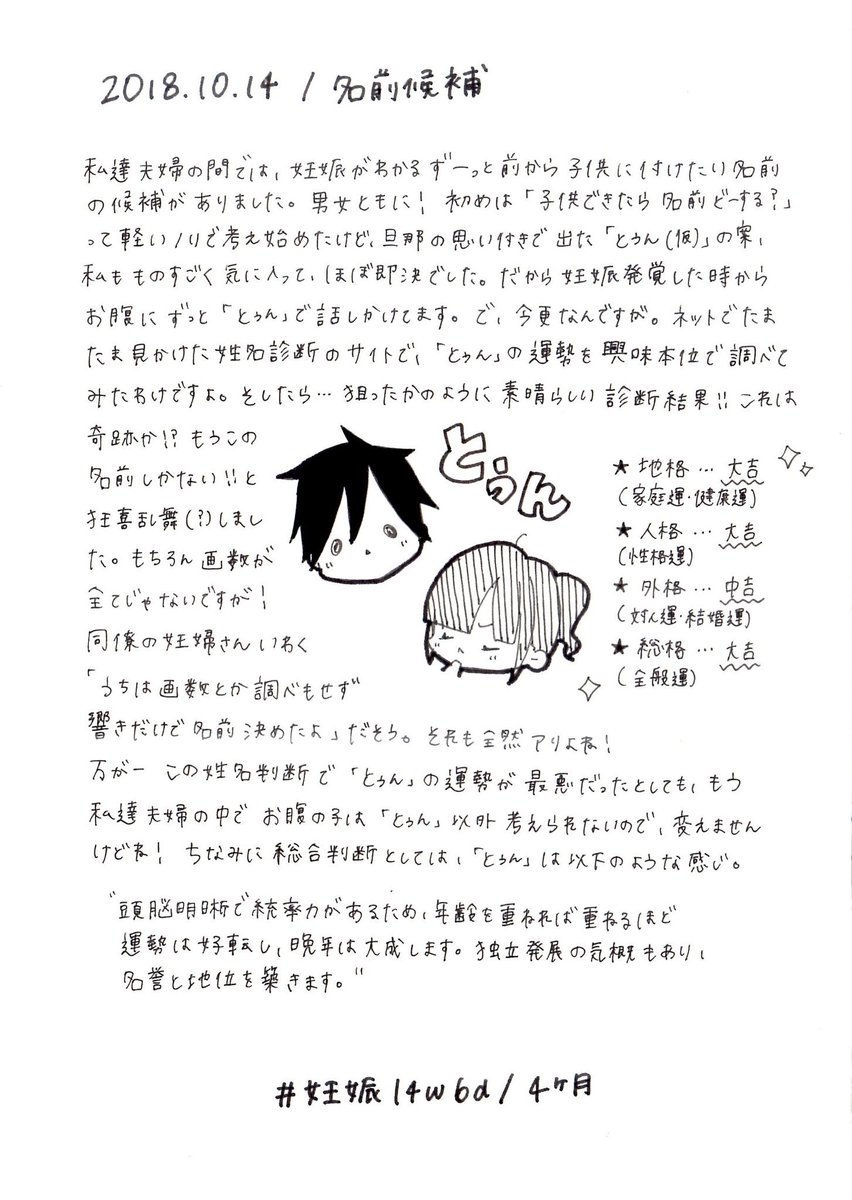 2018.10.14 / 名前候補
私達夫婦の間では、妊娠がわかるずーっと前から子供に付けたい名前
の候補がありました。男女ともに！ 初めは「子供できたら名前どーする？」
って軽いノリで考え始めたけど、旦那の思い付きで出た「とぅん(仮)」の案、
私もものすごく気に入って、ほぼ即決でした。だから妊娠発覚した時から
お腹にずっと「とぅん」で話しかけてます。で、今更なんですが。ネットでたま
たま見かけた姓名診断のサイトで、「とぅん」の運勢を興味本位で調べて
みたわけですよ。そしたら…狙ったかのように素晴らしい診断結果!! これは
奇跡か!? もうこの
名前しかない!! と
狂喜乱舞(?)しまし
た。もちろん画数が
全てじゃないですが！
同僚の妊婦さんいわく
「うちは画数とか調べもせず
響きだけで名前決めたよ」だそう。それも全然アリよね！
万が一この姓名判断で「とぅん」の運勢が最悪だったとしても、もう
私達夫婦の中でお腹の子は「とぅん」以外考えられないので、変えません
けどね！ ちなみに総合判断としては、「とぅん」は以下のような感じ。
とぅん
★ 地格 … 大吉
(家庭運・健康運)
★ 人格 … 大吉
(性格運)
★ 外格 … 中吉
(対人運・結婚運)
★ 総格 … 大吉
(全般運)
"頭脳明晰で統率力があるため、年齢を重ねれば重ねるほど
運勢は好転し、晩年は大成します。独立発展の気概もあり、
名誉と地位を築きます。"
#妊娠14w6d / 4ヶ月